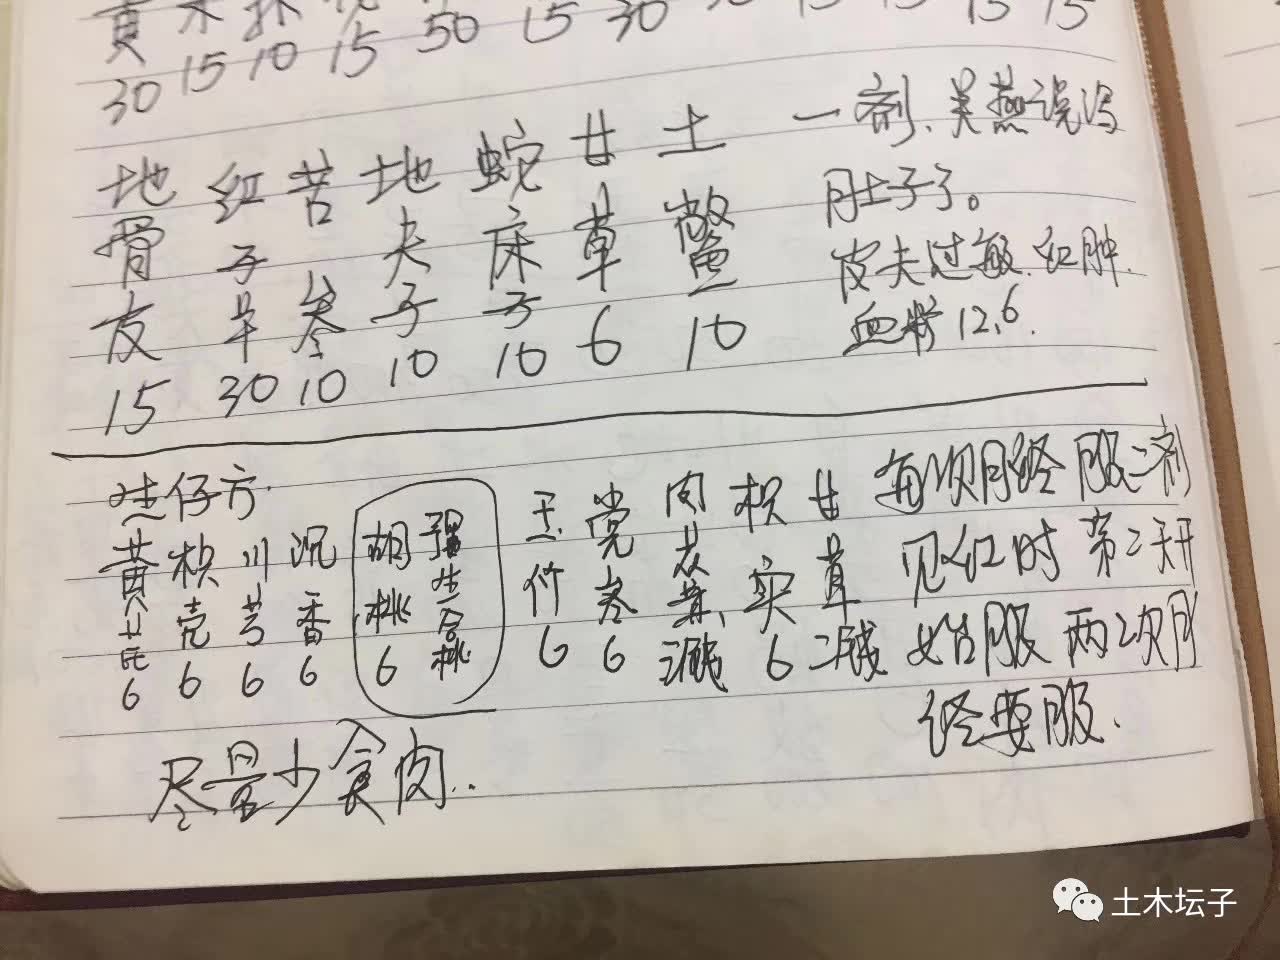 30 15 10 15 50 15 30 15 15
地骨皮 15
红子早 30
苦参 10
地夫子 10
蛇床子 10
甘草 6
土鳖 10
一剂、吴燕说泻
肚子了。
皮夫过敏、红肿.
血糖12.6.
生仔方.
黄芪 6
枳壳 6
川芎 6
沉香 6
胡桃 6
生合桃
玉竹 6
党参 6
肉苁蓉 三钱
枳实 6
甘草 二钱
每次月经服二剂
见红时第二天开
始服两次月
经要服.
尽量少食肉..
土木坛子